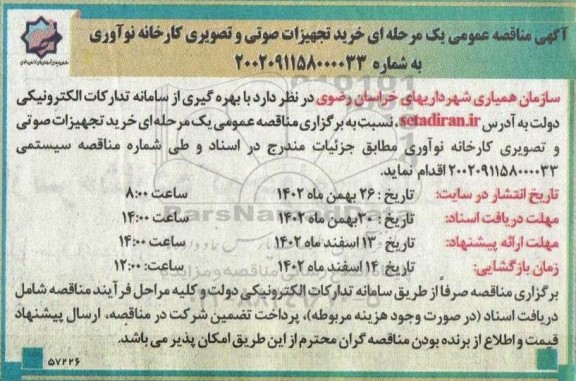 آگهی مناقصه عمومی یک مرحله ای خرید تجهیزات صوتی و تصویری کارخانه نوآوری
به شماره ۲۰۰۲۰۹۱۱۵۸۰۰۰۰۳۳
سازمان همیاری شهرداریهای خراسان رضوی در نظر دارد با بهره گیری از سامانه تدارکات الکترونیکی
دولت به آدرس setadiran.ir، نسبت به برگزاری مناقصه عمومی یک مرحله ای خرید تجهیزات صوتی
و تصویری کارخانه نوآوری مطابق جزئیات مندرج در اسناد و طی شماره مناقصه سیستمی
۲۰۰۲۰۹۱۱۵۸۰۰۰۰۳۳ اقدام نماید.
تاریخ انتشار در سایت: تاریخ: ۲۶ بهمن ماه ۱۴۰۲ ساعت ۸:۰۰
مهلت دریافت اسناد: تاریخ: ۳۰ بهمن ماه ۱۴۰۲ ساعت: ۱۴:۰۰
مهلت ارائه پیشنهاد: تاریخ: ۱۳ اسفند ماه ۱۴۰۲ ساعت: ۱۴:۰۰
زمان بازگشایی: تاریخ: ۱۴ اسفند ماه ۱۴۰۲ ساعت: ۱۲:۰۰
برگزاری مناقصه صرفاً از طریق سامانه تدارکات الکترونیکی دولت و کلیه مراحل فرآیند مناقصه شامل
دریافت اسناد (در صورت وجود هزینه مربوطه)، پرداخت تضمین شرکت در مناقصه، ارسال پیشنهاد
قیمت و اطلاع از برنده بودن مناقصه گران محترم از این طریق امکان پذیر می باشد.
۵۷۲۲۶
ParsNamadData